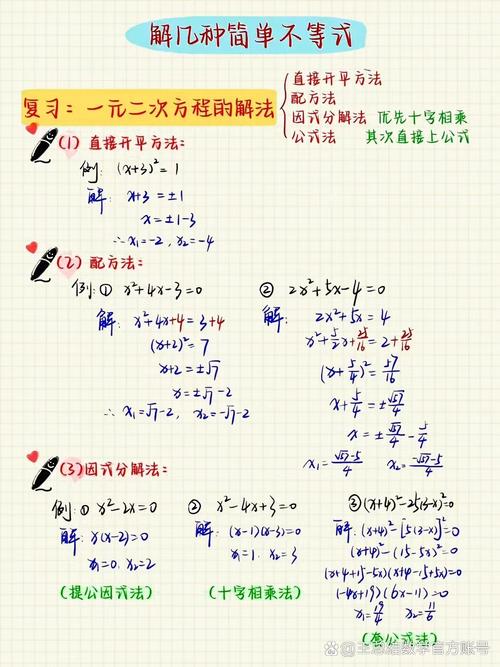 解几种简单不等式
复习：一元二次方程的解法
直接开平方法
配方法
因式分解法 优先十字相乘
公式法 其次直接上公式
(1) 直接开平方法：
例：(x+3)²=1
解：x+3=±1
x=±1-3
∴x₁=-2，x₂=-4
(2) 配方法：
例：① x²+4x-3=0
解：x²+4x+4=3+4
(x+2)²=7
x+2=±√7
x=±√7-2
∴x₁=√7-2，x₂=-√7-2
② 2x²+5x-4=0
解：2x²+5x=4
x²+5/2x+25/16=2+25/16
(x+5/4)²=57/16
x+5/4=±√57/4
x=±√57/4-5/4
x₁=√57-5/4 x₂=-√57-5/4
(3) 因式分解法：
例：① x²-2x=0
解：x(x-2)=0
x₁=0，x₂=2
(提公因式法)
② x²-4x+3=0
解：(x-1)(x-3)=0
x₁=1，x₂=3
(十字相乘法)
③ (x+4)²-25(3-x)²=0
解：(x+4)²-[5(3-x)]²=0
(x+4)²-(15-5x)²=0
(x+4+15-5x)(x+4-15+5x)=0
(-4x+19)(6x-11)=0
x₁=19/4 x₂=11/6
(套公式法)